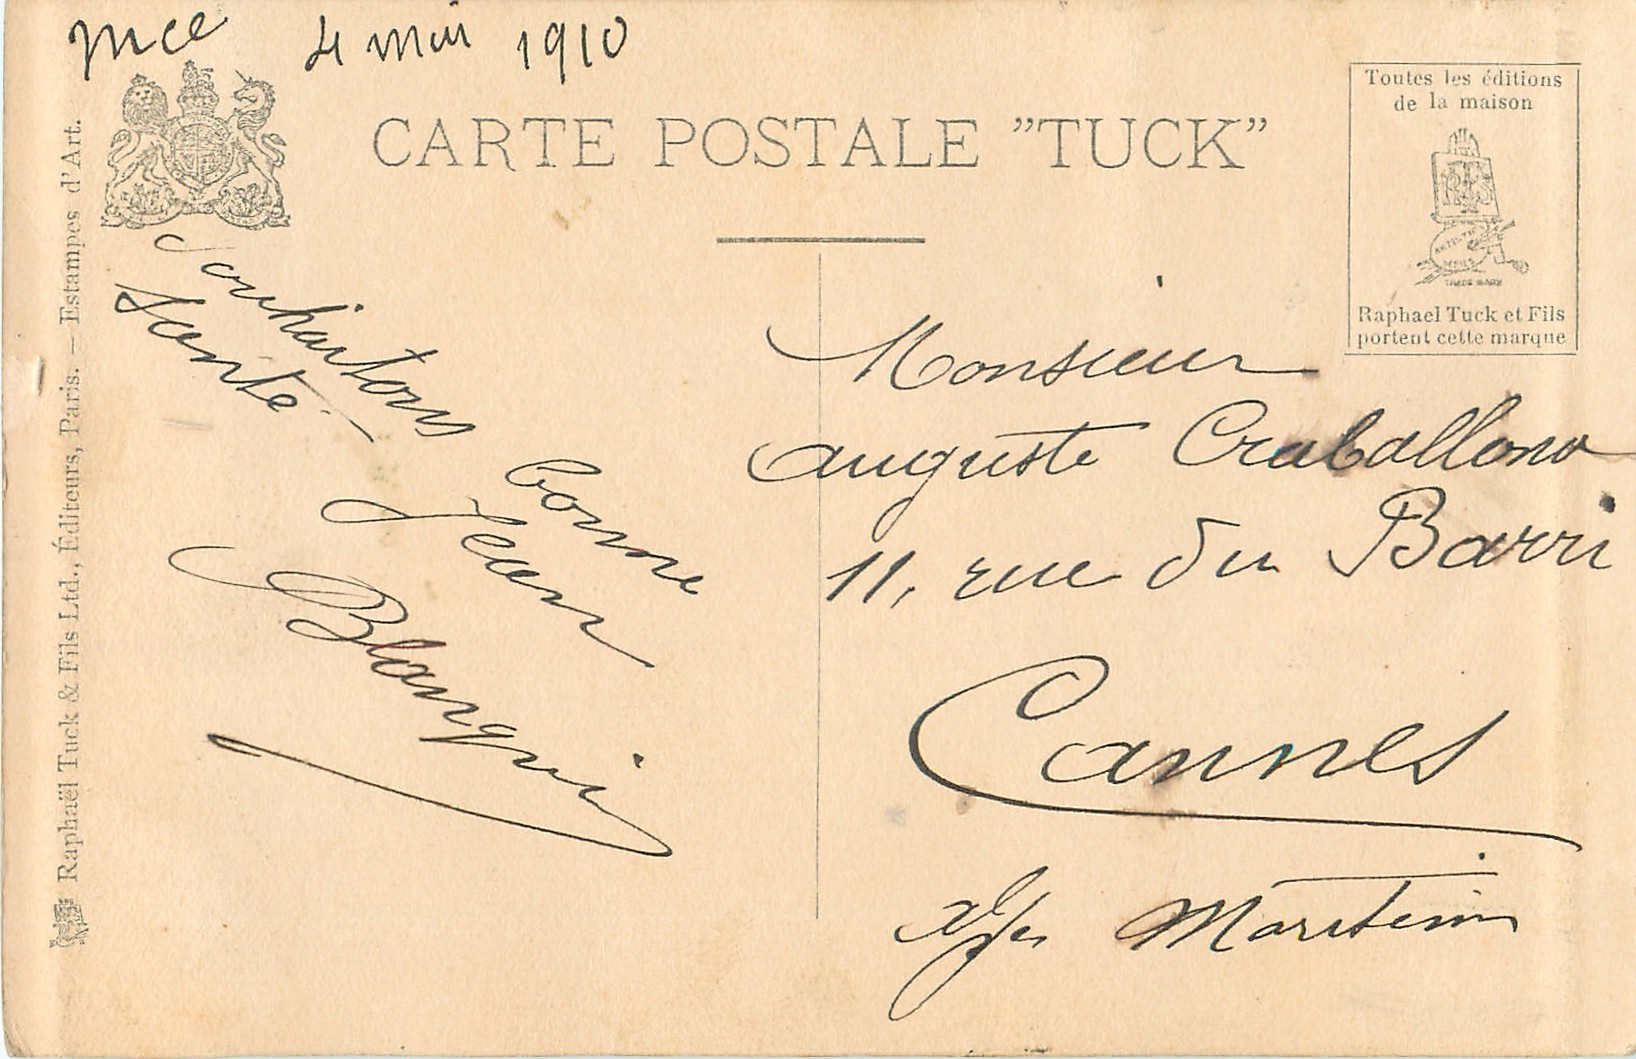 Nice 4 mai 1910
CARTE POSTALE "TUCK"
Toutes les éditions
de la maison
ARTISTIC
TRADE MARK
Raphael Tuck et Fils
portent cette marque
Raphaël Tuck & Fils Ltd., Éditeurs, Paris. — Estampes d'Art.
Souhaitons bonne
Santé.
Jean
Blanqui
Monsieur
Auguste Craballona
11, rue du Barri
Cannes
Alpes Maritimes